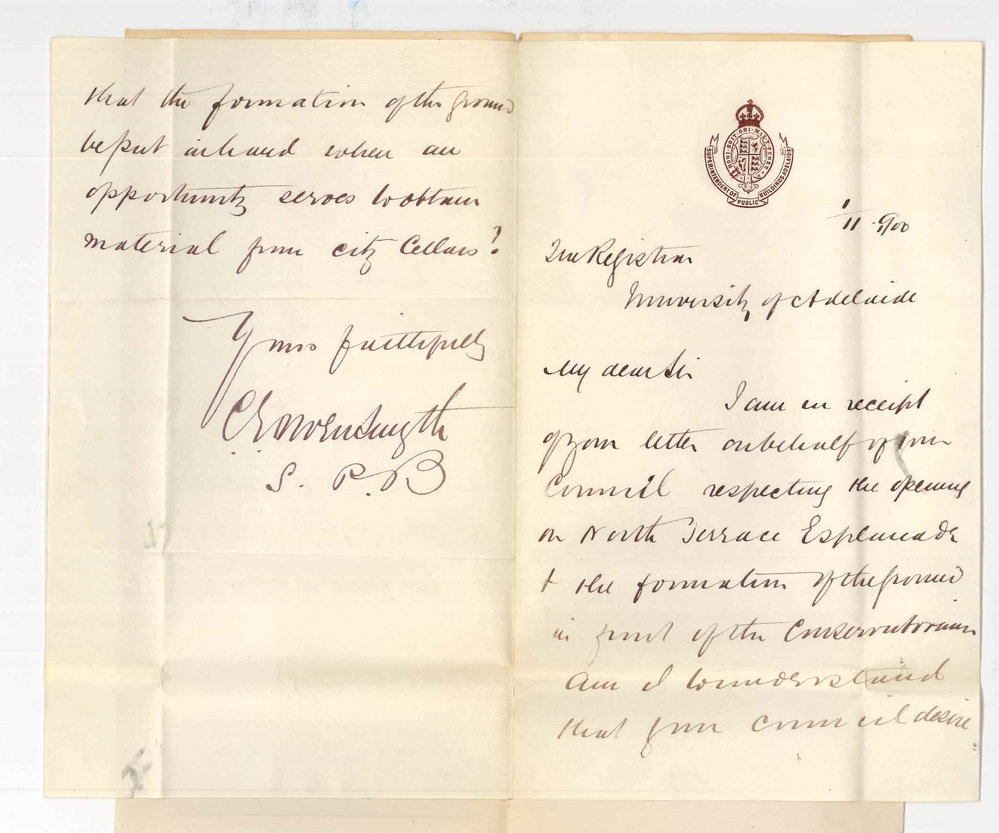 HONI SOIT QUI MAL Y PENSE
SUPERINTENDENT OF PUBLIC BUILDINGS ADELAIDE
1/11 1900
The Registrar
University of Adelaide
My dear Sir
I am in receipt
of your letter on behalf of your
Council respecting the opening
on North Terrace Esplanade
& the formation of the ground
in front of the Conservatorium
Am I to understand
that your Council desire
that the formation of the ground
be put in hand when an
opportunity serves to obtain
material from city Cellars?
Yours faithfully
C E Owen Smyth
S. P. B